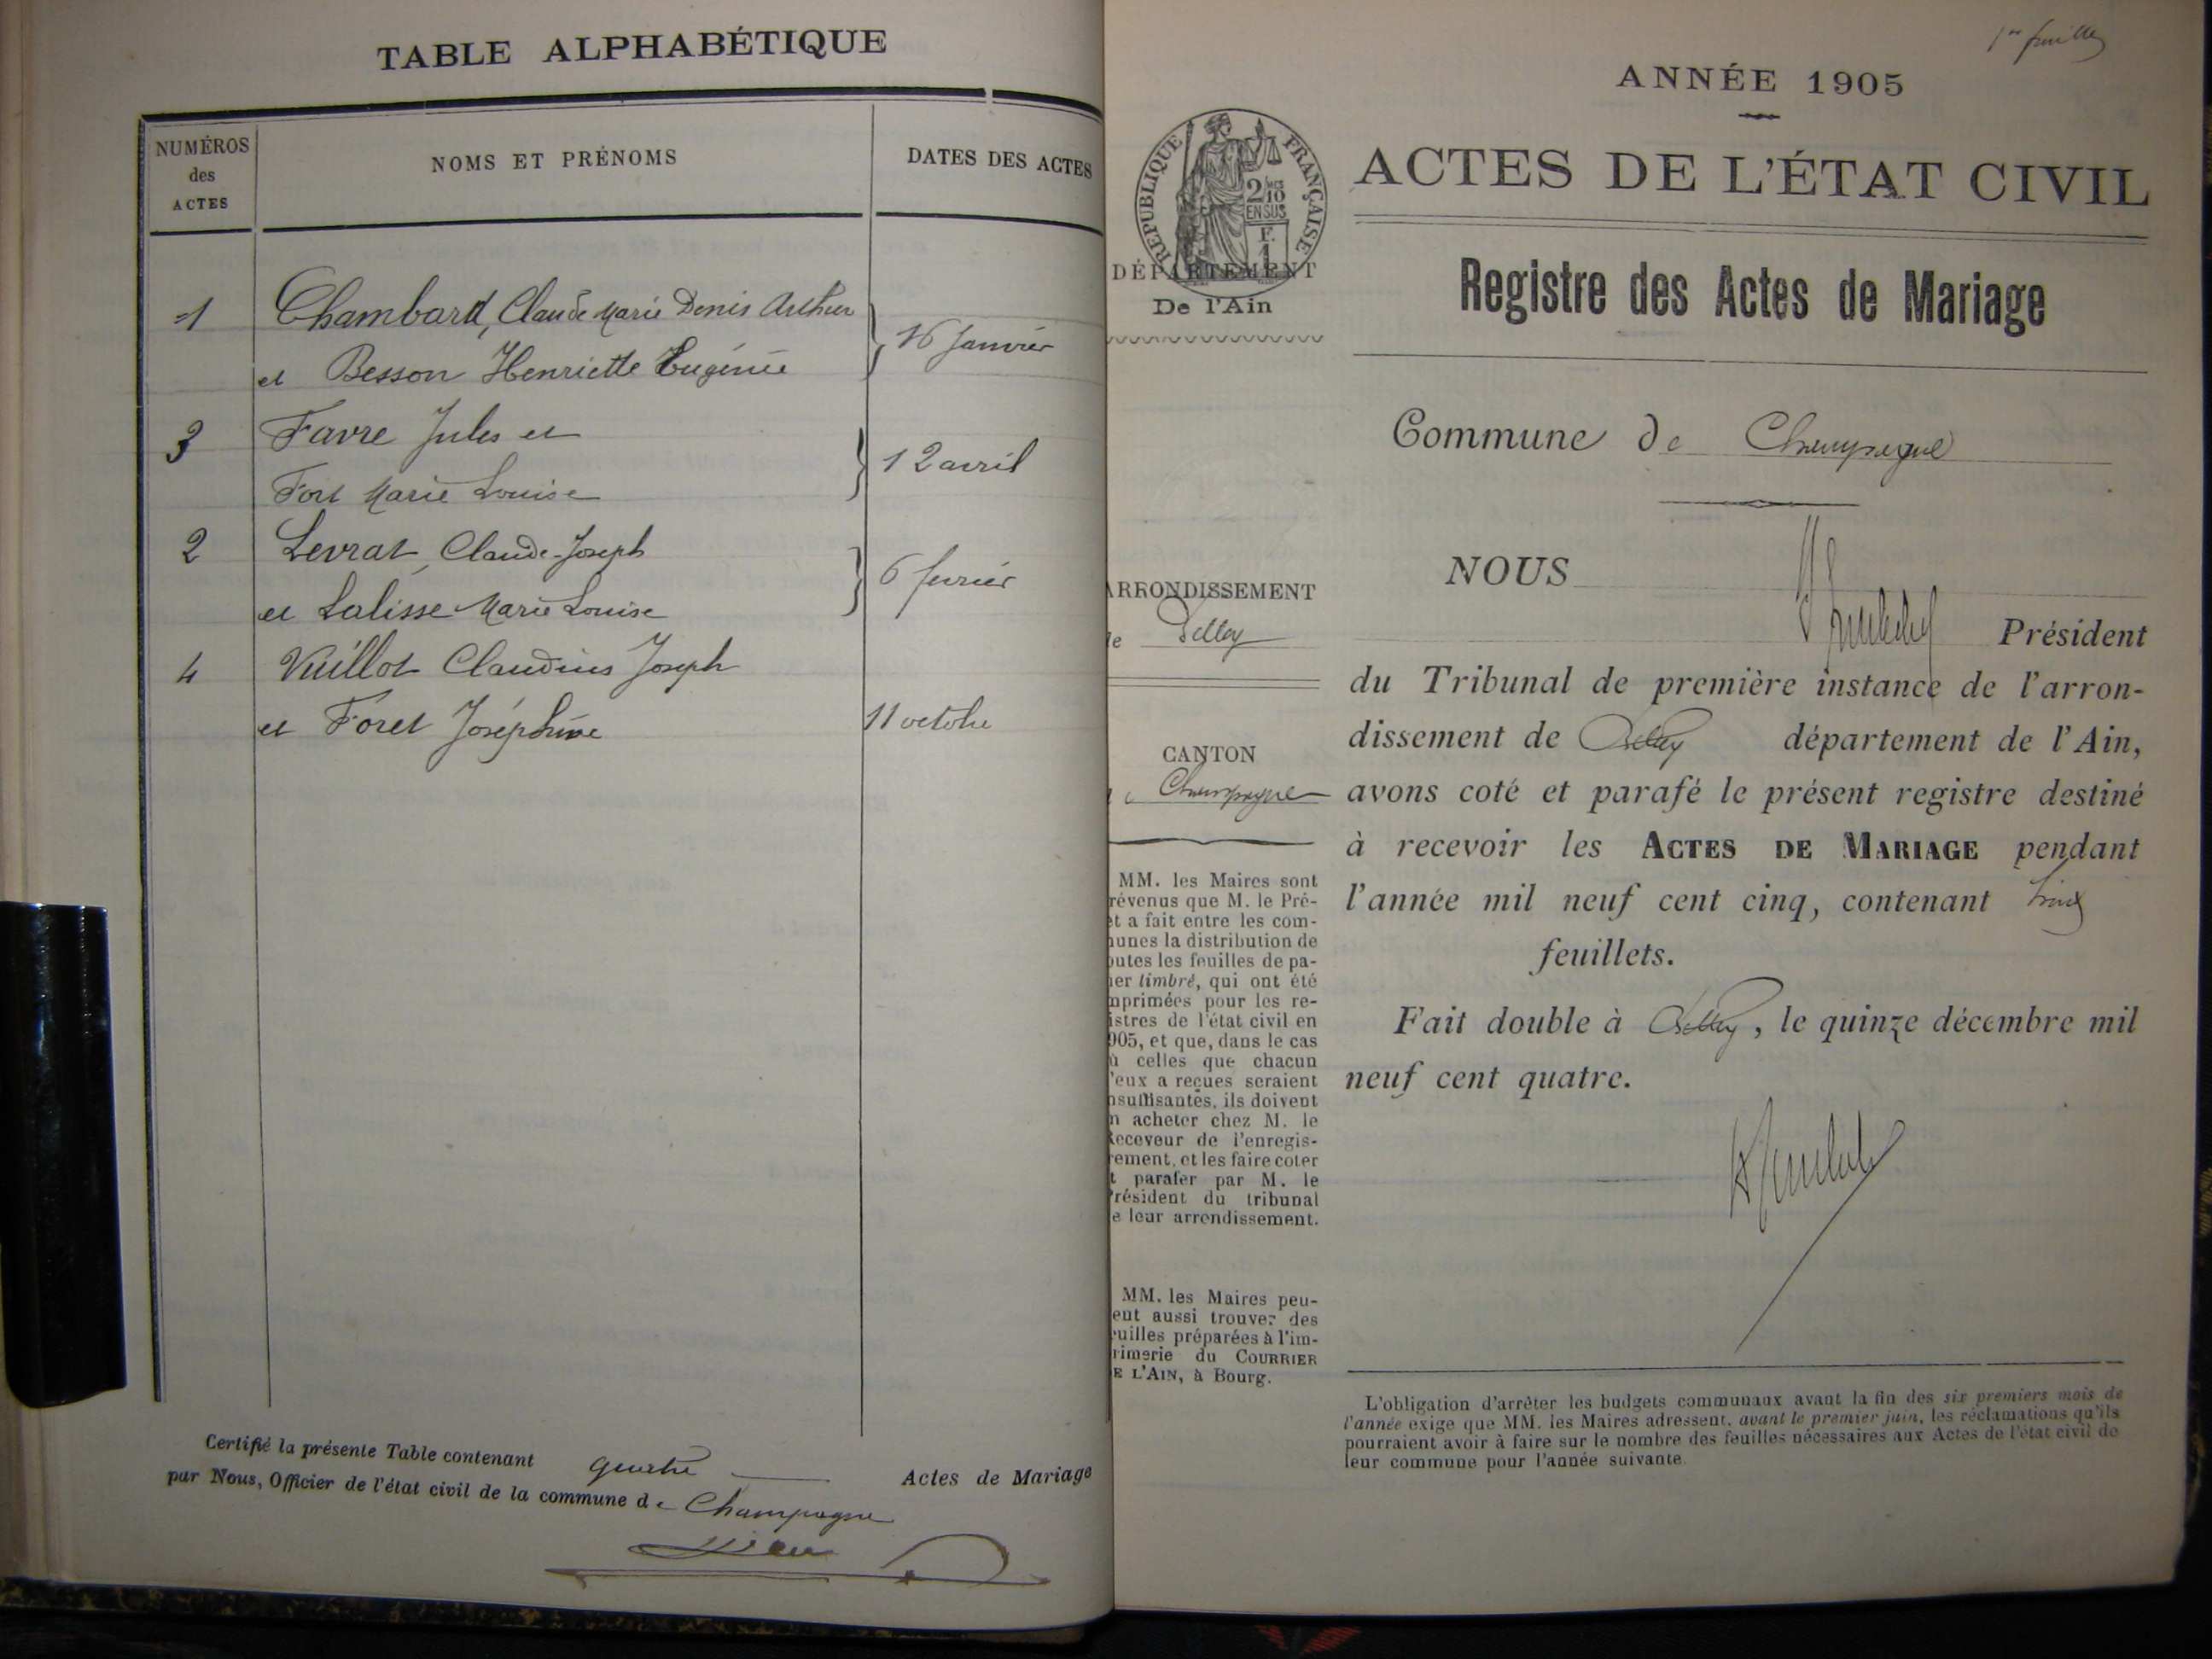 TABLE ALPHABÉTIQUE
NUMÉROS
des
ACTES
NOMS ET PRÉNOMS
DATES DES ACTES
1 Chambard, Claude Marie Denis Arthur
et Besson Henriette Eugénie
16 Janvier
3 Favre Jules et
Fort Marie Louise
12 avril
2 Levrat, Claude-Joseph
et Lalisse Marie Louise
6 fevrier
4 Vuillot Claudius Joseph
et Foret Joséphine
11 octobre
Certifié la présente Table contenant quatre Actes de Mariage
par Nous, Officier de l'état civil de la commune de Champagne
1er feuillet
ANNÉE 1905
ACTES DE L'ÉTAT CIVIL
RÉPUBLIQUE FRANÇAISE
2/10
EN SUS
F.
1
DÉPARTEMENT
De l'Ain
Registre des Actes de Mariage
Commune de Champagne
ARRONDISSEMENT
de Belley
CANTON
Champagne
NOUS
Président
du Tribunal de première instance de l'arron-
dissement de Belley département de l'Ain,
avons coté et parafé le présent registre destiné
à recevoir les ACTES DE MARIAGE pendant
l'année mil neuf cent cinq, contenant trois
feuillets.
Fait double à Belley, le quinze décembre mil
neuf cent quatre.
MM. les Maires sont
révenus que M. le Pré-
et a fait entre les com-
unes la distribution de
outes les feuilles de pa-
ier timbré, qui ont été
mprimées pour les re-
istres de l'état civil en
905, et que, dans le cas
ù celles que chacun
'eux a reçues seraient
nsuffisantes, ils doivent
n acheter chez M. le
Receveur de l'enregis-
rement, et les faire coter
t parafer par M. le
Président du tribunal
e leur arrondissement.
MM. les Maires peu-
ent aussi trouver des
euilles préparées à l'im-
rimerie du COURRIER
E L'AIN, à Bourg.
L'obligation d'arrêter les budgets communaux avant la fin des six premiers mois de
l'année exige que MM. les Maires adressent, avant le premier juin, les réclamations qu'ils
pourraient avoir à faire sur le nombre des feuilles nécessaires aux Actes de l'état civil de
leur commune pour l'année suivante.